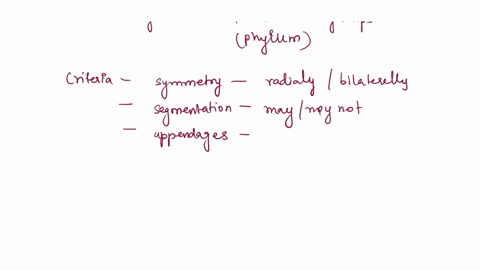 (phylum)
Criteria — symmetry — radialy / bilaterelly
— segmentation — may / may not
— appendages —